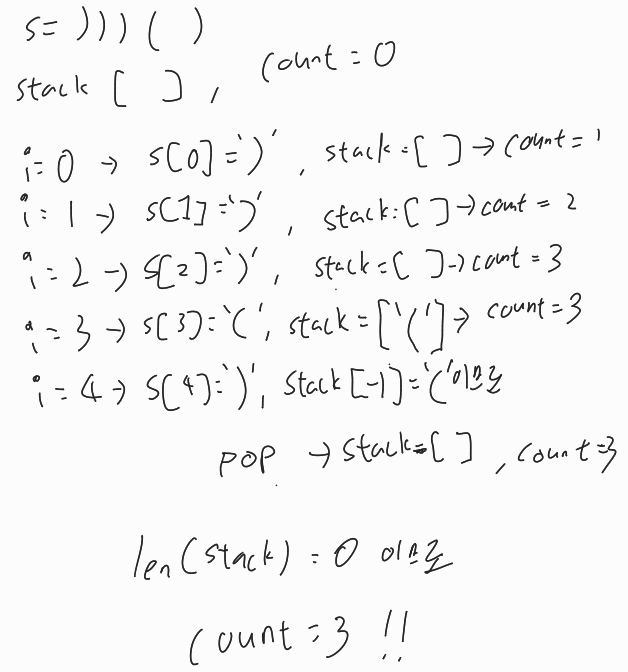 s= ) ) ) ( )
stack [ ] , count = 0
i=0 → s[0]=')' , stack=[ ]→ count = 1
i=1 → s[1]=')' , stack=[ ]→count = 2
i=2→ s[2]=')' , stack=[ ]→count = 3
i=3 → s[3]='(' , stack=['(']→ count=3
i=4→ s[4]=')' , stack[-1]='('이므로
pop → stack=[ ] , count=3
len(stack) = 0 이므로
count=3 !!